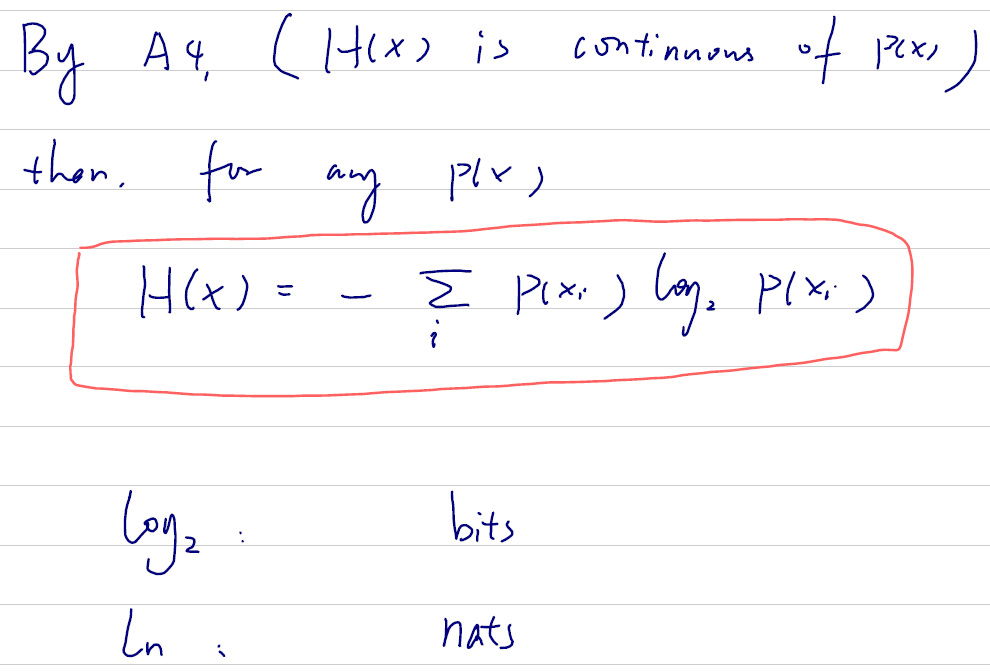 By A4, (H(x) is continuous of p(x))
then, for any p(x)
H(x) = - Σ_i p(x_i) log_2 p(x_i)
log_2 : bits
Ln : nats